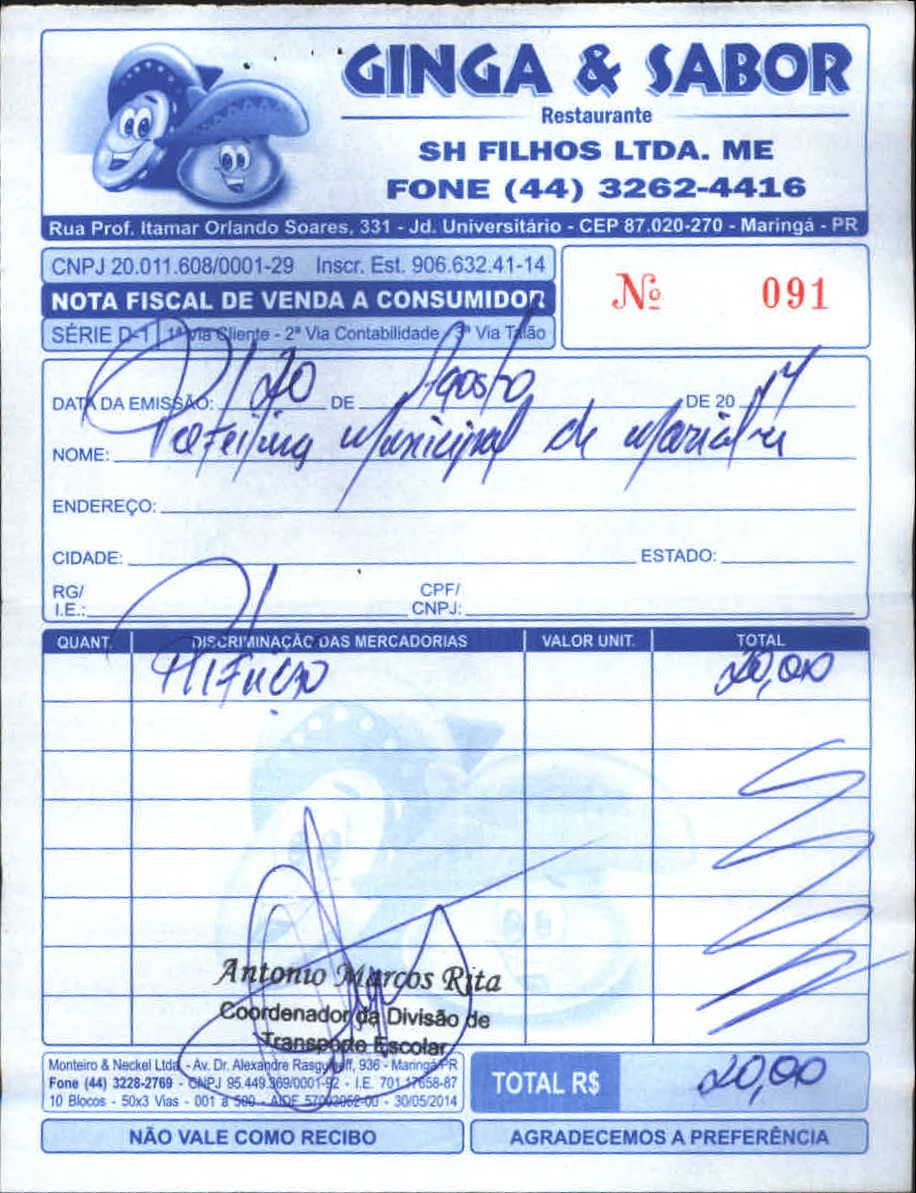 GINGA & SABOR
Restaurante
SH FILHOS LTDA. ME
FONE (44) 3262-4416
Rua Prof. Itamar Orlando Soares, 331 - Jd. Universitário - CEP 87.020-270 - Maringá - PR
CNPJ 20.011.608/0001-29 Inscr. Est. 906.632.41-14
NOTA FISCAL DE VENDA A CONSUMIDOR
Nº 091
SÉRIE D-1 1ª Via Cliente - 2ª Via Contabilidade - 3ª Via Talão
DATA DA EMISSÃO: 20 DE Agosto DE 20 14
NOME: Prefeitura Municipal de Marialva
ENDEREÇO:
CIDADE: ESTADO:
RG/ I.E.: CPF/ CNPJ:
QUANT. DISCRIMINAÇÃO DAS MERCADORIAS VALOR UNIT. TOTAL
20,00
Antonio Marcos Rita
Coordenador da Divisão de
Transporte Escolar
Monteiro & Neckel Ltda. - Av. Dr. Alexandre 936 - Maringá-PR
Fone (44) 3228-2769 - CNPJ 95.449.369/0001-92 - I.E. 701.17658-87
10 Blocos - 50x3 Vias - 001 a 500 - AIDF - 30/05/2014
TOTAL R$ 20,00
NÃO VALE COMO RECIBO
AGRADECEMOS A PREFERÊNCIA